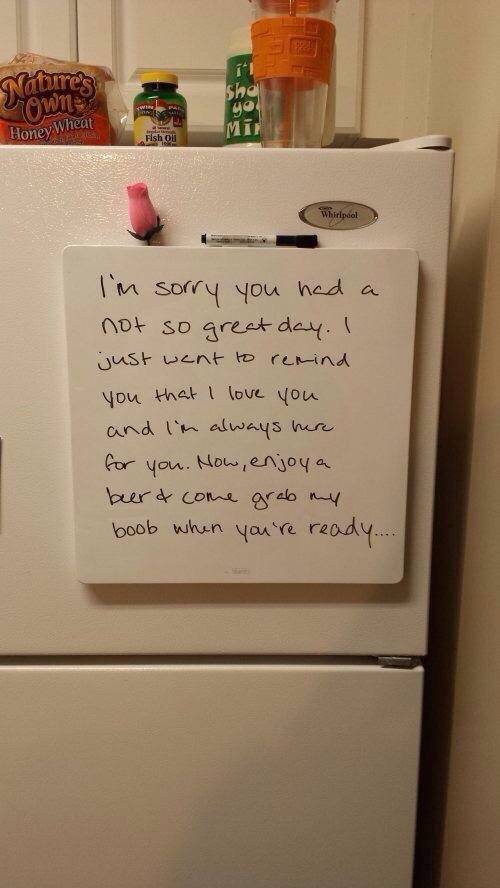 Nature's
Own
Honey Wheat
TWIN PACK
Fish Oil
i't
Sho
yo
Mi
Whirlpool
I'm sorry you had a
not so great day. I
just want to remind
you that I love you
and I'm always here
for you. Now, enjoy a
beer & come grab my
boob when you're ready....